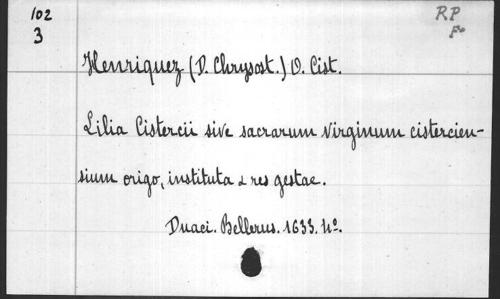 102
3
RP
Fo
Henriquez (D. Chrysost.) O. Cist.
Lilia Cistercii sive sacrarum virginum cistercien-
sium origo, instituta & res gestae.
Duaci. Bellerus. 1633. 4º.